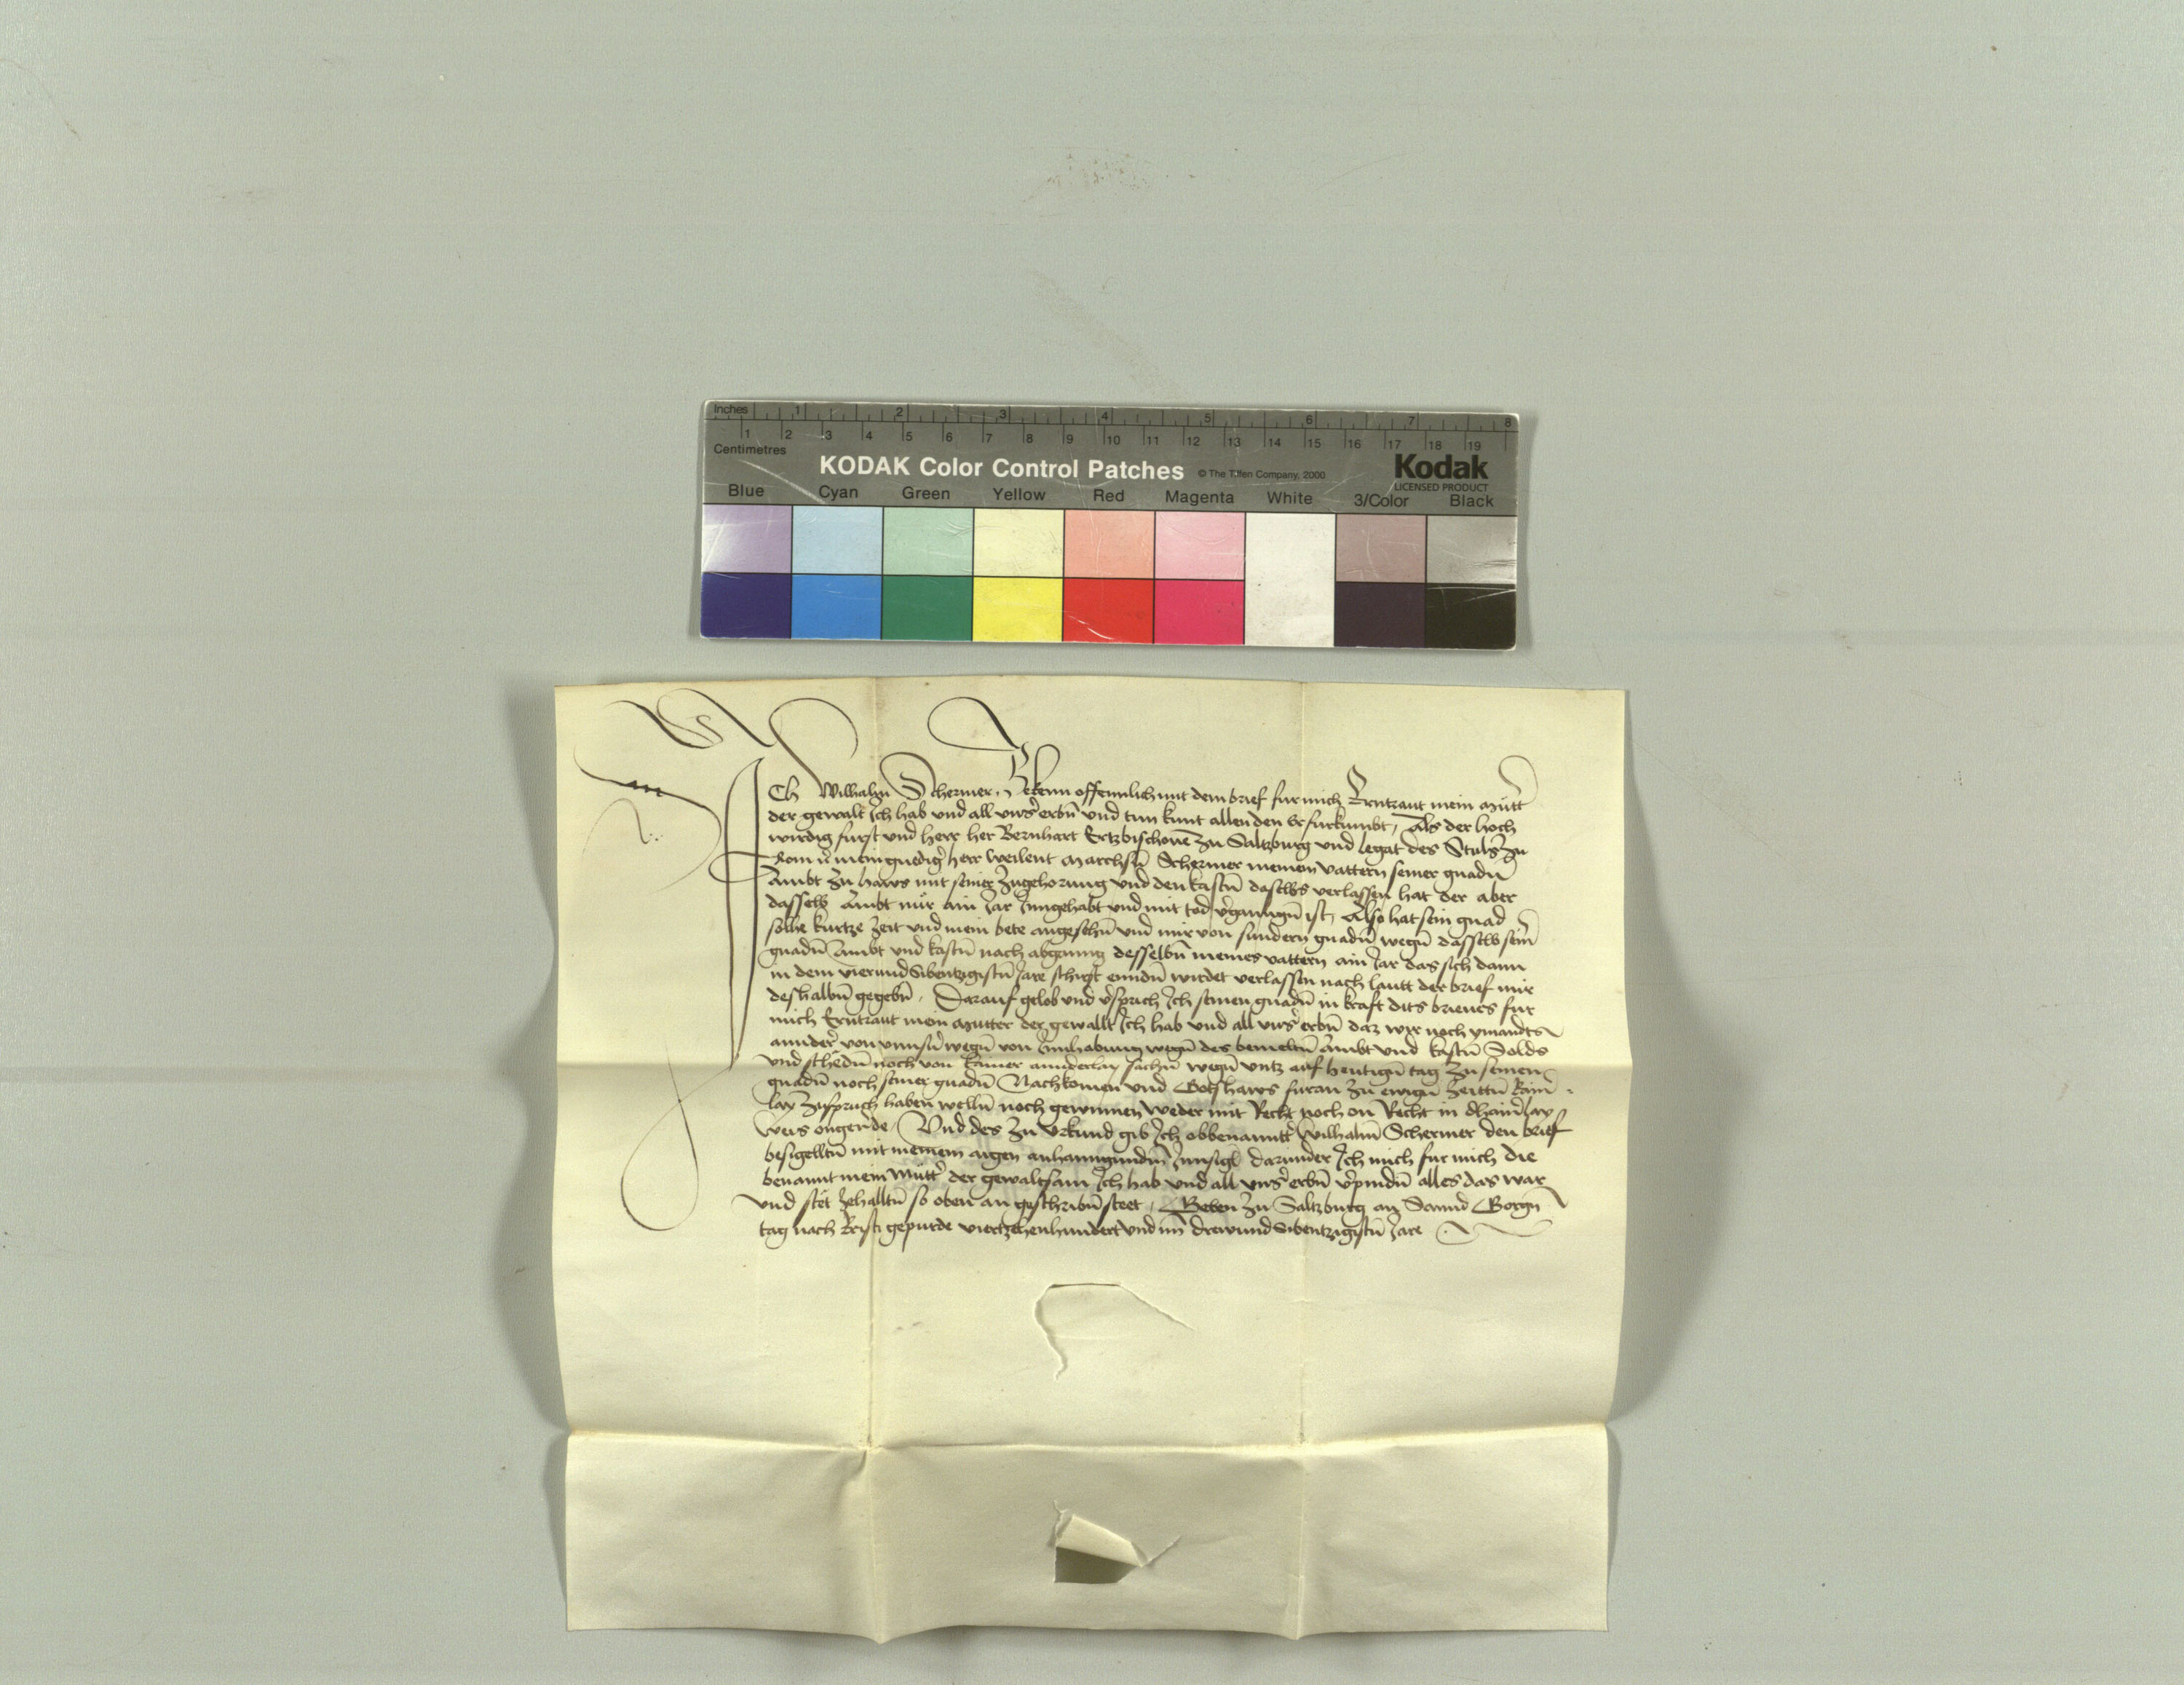 Inches 1 2 3 4 5 6 7 8
1 2 3 4 5 6 7 8 9 10 11 12 13 14 15 16 17 18 19
Centimetres
KODAK Color Control Patches © The Tiffen Company, 2000 Kodak
LICENSED PRODUCT
Blue Cyan Green Yellow Red Magenta White 3/Color Black
ICh Wilhalm Schermer Bekenn offennlich mit dem brief fur mich Erntraut mein Mutt̉
der gewalt Ich hab vnd all vnns̉ erbn̄ vnd tun kunt allen den Er furkumbt, Als der hoch
wirdig furst vnd herr her Bernhart Ertzbischoue zu Saltzburg vnd legat des Stuls zu
Rom ꝛc mein gnedig̉ herr weilent Marchsn̄ Schermer meinem vattern seiner gnadn̄
Ambt zu haws mit seiner zugehorung vnd den kastn̄ daselbs verlassen hat der aber
dasselb Ambt nur ain Jar Inngehabt vnd mit tod v̉ganngn̄ ist, Also hat sein gnad
solhe kurtze zeit vnd mein bete angesehn̄ vnd mir von sundern gnadn̄ wegn̄ dasselb sein̉
gnadn̄ Ambt vnd kastn̄ nach abganng desselbn̄ meines vattern ain Jar das sich dann
in dem vierund Sibentzigistn̄ Jare schirst enndn̄ wirdet verlassen nach lautt der brief mir
deshalbn̄ gegebn̄. Darauf gelob vnd v̉sprich Ich seinen gnadn̄ in kraft dits brieues fur
mich Erntraut mein Mutter der gewallt Ich hab vnd all vnns̉ erbn̄ daz wir noch ymandts
annder̉ von vnnsn̉ wegn̄ von Innhabung wegn̄ des bemeltn̄ Ambt vnd kastn̄ Solds
vnd schedn̄ noch von kainer annderlay sachn̄ wegn̄ vntz auf heutign̄ tag zu seinen
gnadn̄ noch seiner gnadn̄ Nachkomen vnd Gotzhaws furan zu ewign̄ zeittn̄ kain̉
lay zuspruch haben welln̄ noch gewinnen weder mit Recht noch on Recht in dhain̉lay
weis ongeu̓de. Vnd des zu vrkund gib Ich obbenannt̉ Wilhalm Schermer den brief
besigelltn̄ mit meinem aigen anhanngundm̄ Innsigl darunder Ich mich fur mich die
benannt mein Mutt̉ der gewaltsam Ich hab vnd all vnns̉ erbn̄ v̉pindn̄ alles das war
vnd stet zehalltn̄ so oben an geschribn̄ steet, Geben zu Saltzburg an Sannd Gorgn̄
tag nach Kristi gepurde viertzehenhundert vnd im̄ drewund Sibentzigistn̄ Jare